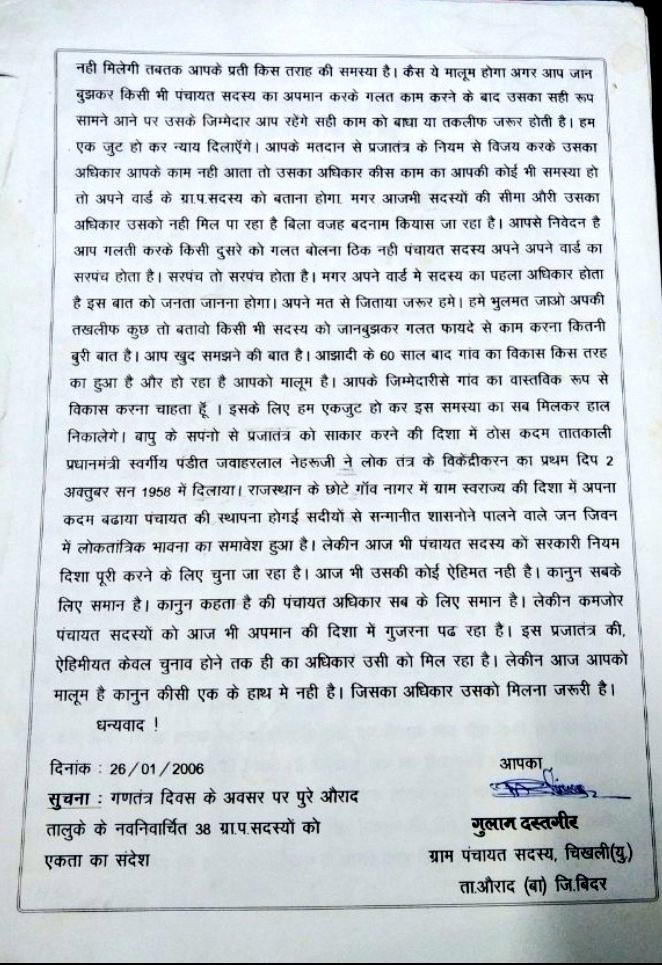 नही मिलेगी तबतक आपके प्रती किस तराह की समस्या है। कैस ये मालूम होगा अगर आप जान
बुझकर किसी भी पंचायत सदस्य का अपमान करके गलत काम करने के बाद उसका सही रूप
सामने आने पर उसके जिम्मेदार आप रहेंगे सही काम को बाधा या तकलीफ जरूर होती है। हम
एक जुट हो कर न्याय दिलाऍंगे। आपके मतदान से प्रजातंत्र के नियम से विजय करके उसका
अधिकार आपके काम नही आता तो उसका अधिकार कीस काम का आपकी कोई भी समस्या हो
तो अपने वार्ड के ग्रा.प.सदस्य को बताना होगा. मगर आजमी सदस्यों की सीमा औरी उसका
अधिकार उसको नही मिल पा रहा है बिला वजह बदनाम कियास जा रहा है। आपसे निवेदन है
आप गलती करके किसी दुसरे को गलत बोलना ठिक नही पंचायत सदस्य अपने अपने वार्ड का
सरपंच होता है। सरपंच तो सरपंच होता है। मगर अपने वार्ड मे सदस्य का पहला अधिकार होता
है इस बात को जनता जानना होगा। अपने मत से जिताया जरूर हमे। हमे भुलमत जाओ अपकी
तखलीफ कुछ तो बतावो किसी भी सदस्य को जानबुझकर गलत फायदे से काम करना कितनी
बुरी बात है। आप खुद समझने की बात है। आझादी के 60 साल बाद गांव का विकास किस तरह
का हुआ है और हो रहा है आपको मालूम है। आपके जिम्मेदारीसे गांव का वास्तविक रूप से
विकास करना चाहता हूँ । इसके लिए हम एकजुट हो कर इस समस्या का सब मिलकर हाल
निकालेगे। बापु के सपनो से प्रजातंत्र को साकार करने की दिशा में ठोस कदम तातकाली
प्रधानमंत्री स्वर्गीय पंडीत जवाहरलाल नेहरूजी ने लोक तंत्र के विकेंद्रीकरन का प्रथम दिप 2
अक्तुबर सन 1958 में दिलाया। राजस्थान के छोटे गॉव नागर में ग्राम स्वराज्य की दिशा में अपना
कदम बढाया पंचायत की स्थापना होगई सदीयों से सन्मानीत शासनोने पालने वाले जन जिवन
में लोकतांत्रिक भावना का समावेश हुआ है। लेकीन आज भी पंचायत सदस्य को सरकारी नियम
दिशा पूरी करने के लिए चुना जा रहा है। आज भी उसकी कोई ऐहिमत नही है। कानुन सबके
लिए समान है। कानुन कहता है की पंचायत अधिकार सब के लिए समान है। लेकीन कमजोर
पंचायत सदस्यों को आज भी अपमान की दिशा में गुजरना पढ रहा है। इस प्रजातंत्र की,
ऐहिमीयत केवल चुनाव होने तक ही का अधिकार उसी को मिल रहा है। लेकीन आज आपको
मालूम है कानुन कीसी एक के हाथ मे नही है। जिसका अधिकार उसको मिलना जरूरी है।
धन्यवाद !
दिनांक : 26/01/2006
सुचना : गणतंत्र दिवस के अवसर पर पुरे औराद
तालुके के नवनिवार्चित 38 ग्रा.प.सदस्यों को
एकता का संदेश
आपका
गुलाम दस्तगीर
ग्राम पंचायत सदस्य, चिखली(यु.)
ता.औराद (बा) जि.बिदर